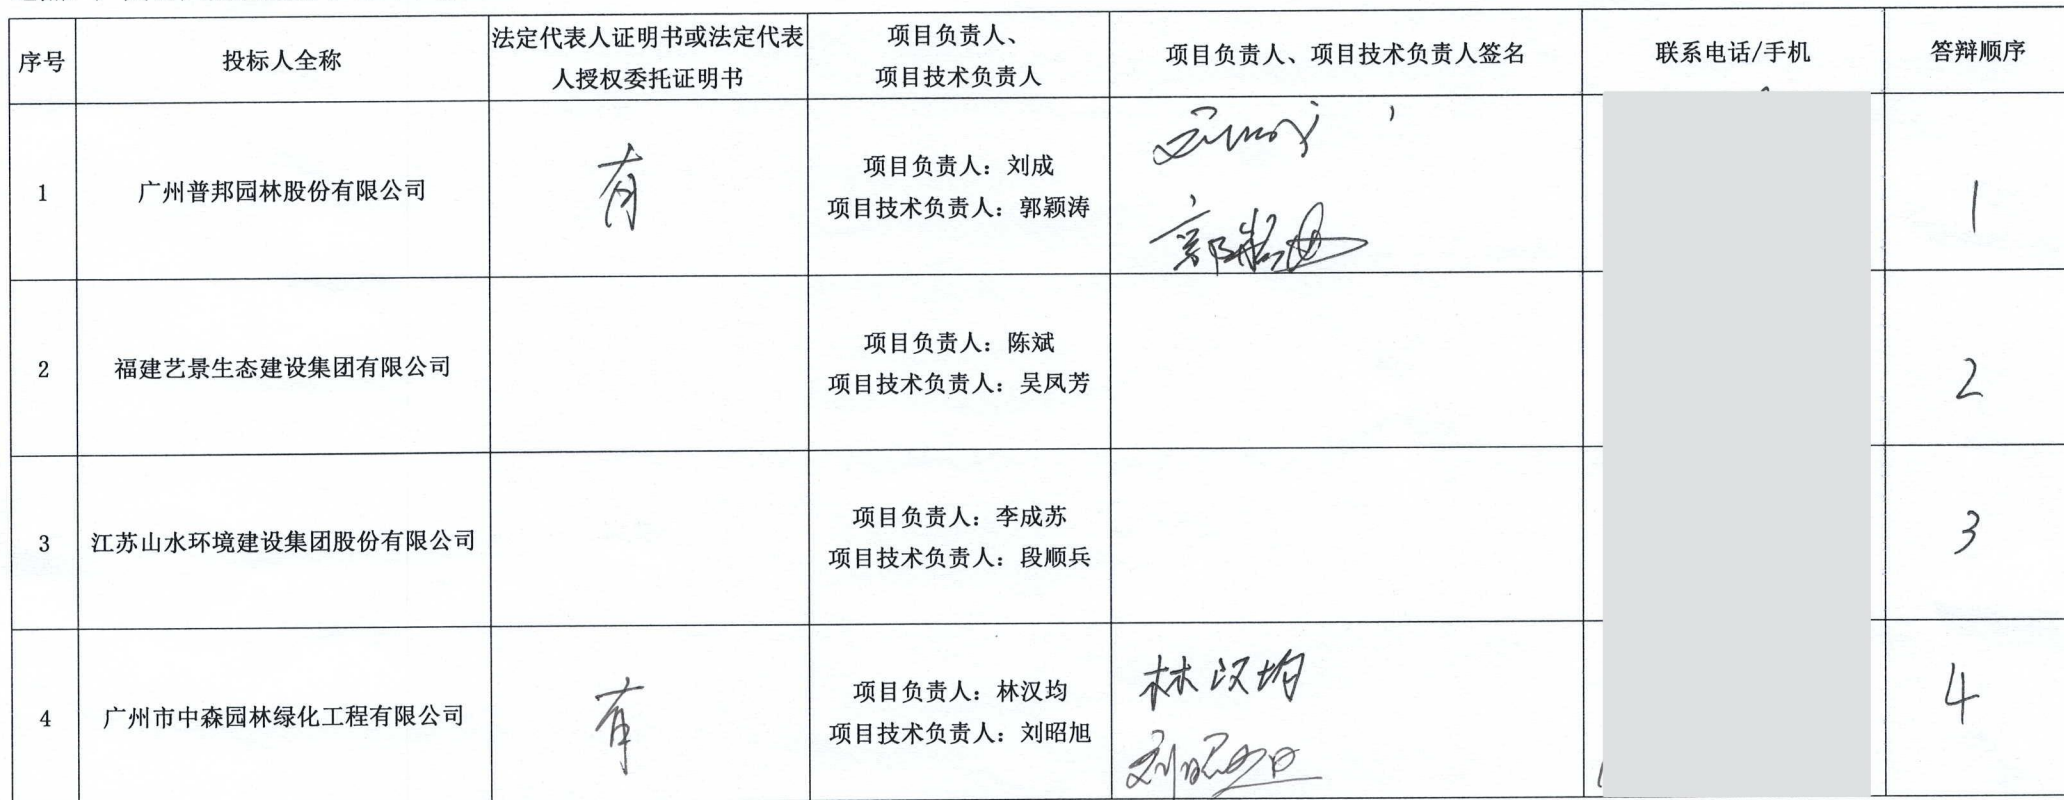 序号
投标人全称
法定代表人证明书或法定代表
人授权委托证明书
项目负责人、
项目技术负责人
项目负责人、项目技术负责人签名
联系电话/手机
答辩顺序
1
广州普邦园林股份有限公司
有
项目负责人：刘成
项目技术负责人：郭颖涛
1
2
福建艺景生态建设集团有限公司
项目负责人：陈斌
项目技术负责人：吴凤芳
2
3
江苏山水环境建设集团股份有限公司
项目负责人：李成苏
项目技术负责人：段顺兵
3
4
广州市中森园林绿化工程有限公司
有
项目负责人：林汉均
项目技术负责人：刘昭旭
林汉均
刘昭旭
4